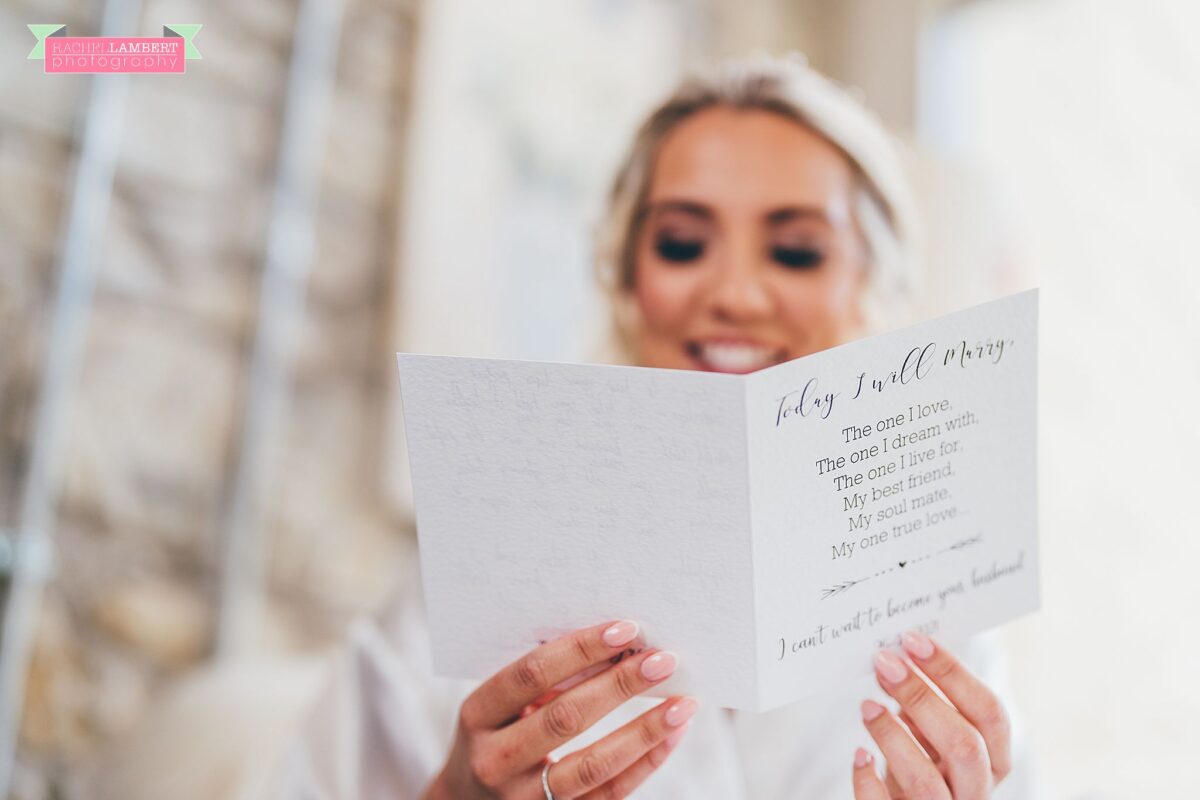 RACHEL LAMBERT
photography
Today I will Marry,
The one I love,
The one I dream with,
The one I live for,
My best friend,
My soul mate,
My one true love...
I can't wait to become your husband